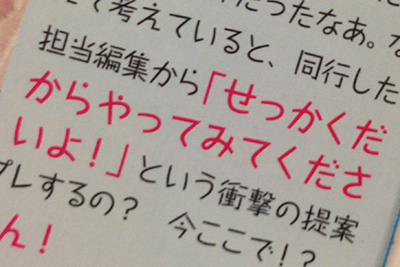 だったなあ。な
て考えていると、同行した
担当編集から「せっかくだ
からやってみてくださ
いよ!」という衝撃の提案
プレするの? 今ここで!?
ん!